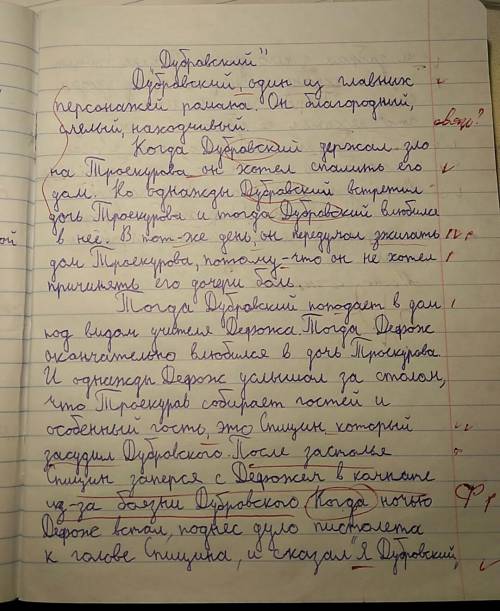 „Дубровский"
Дубровский, один из главних
персонажей романа. Он благородный,
смелый, находчивый.
связь?
Когда Дубровский держал зло
на Троекурова он хотел спалить его
дом. Но однажды Дубровский встретил
дочь Троекурова и тогда Дубровский влюбился
в неё. В тот-же день, он передумал зжигать
ой
дом Троекурова, потому-что он не хотел
причинять его дочери боль.
Тогда Дубровский поподает в дом
под видом учителя Дефожа. Тогда Дефож
окончательно влюбился в дочь Троекурова.
И однажды Дефож услышал за столом,
что Троекурав собирает гостей и
особенный гость, это Спицин который
засудил Дубровского. После застолья
Спицин заперся с Дефожем в комнате
из-за боязни Дубровского Когда ночью
Ф
Дефож встал, поднёс дуло пистолета
к голове Спицина, и сказал "Я Дубровский,